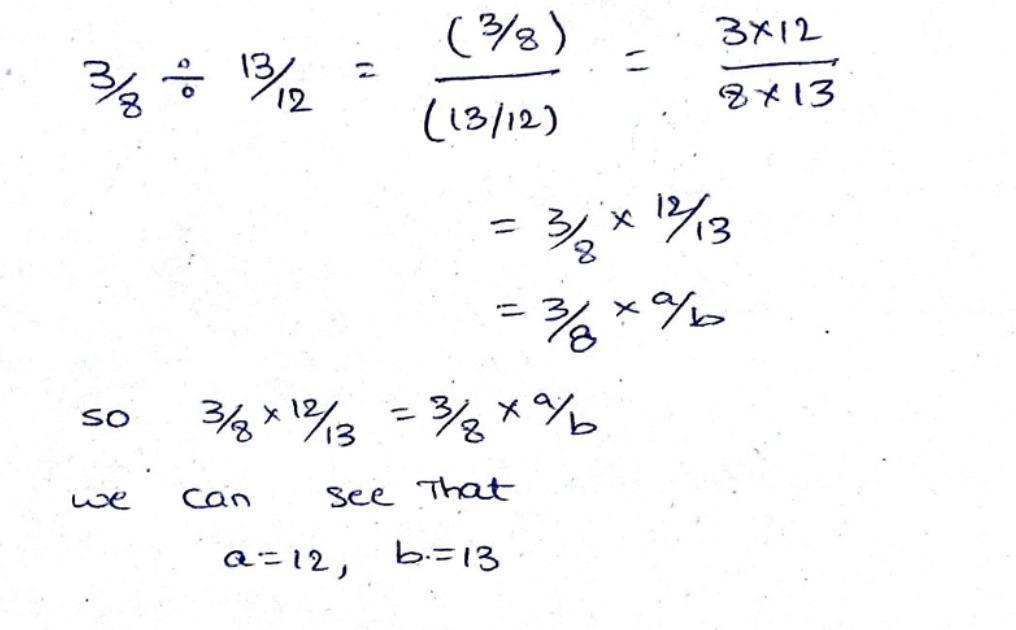 3/8 ÷ 13/12 = (3/8) / (13/12) = 3×12 / 8×13
= 3/8 × 12/13
= 3/8 × a/b
so 3/8 × 12/13 = 3/8 × a/b
we can see That
a=12, b=13